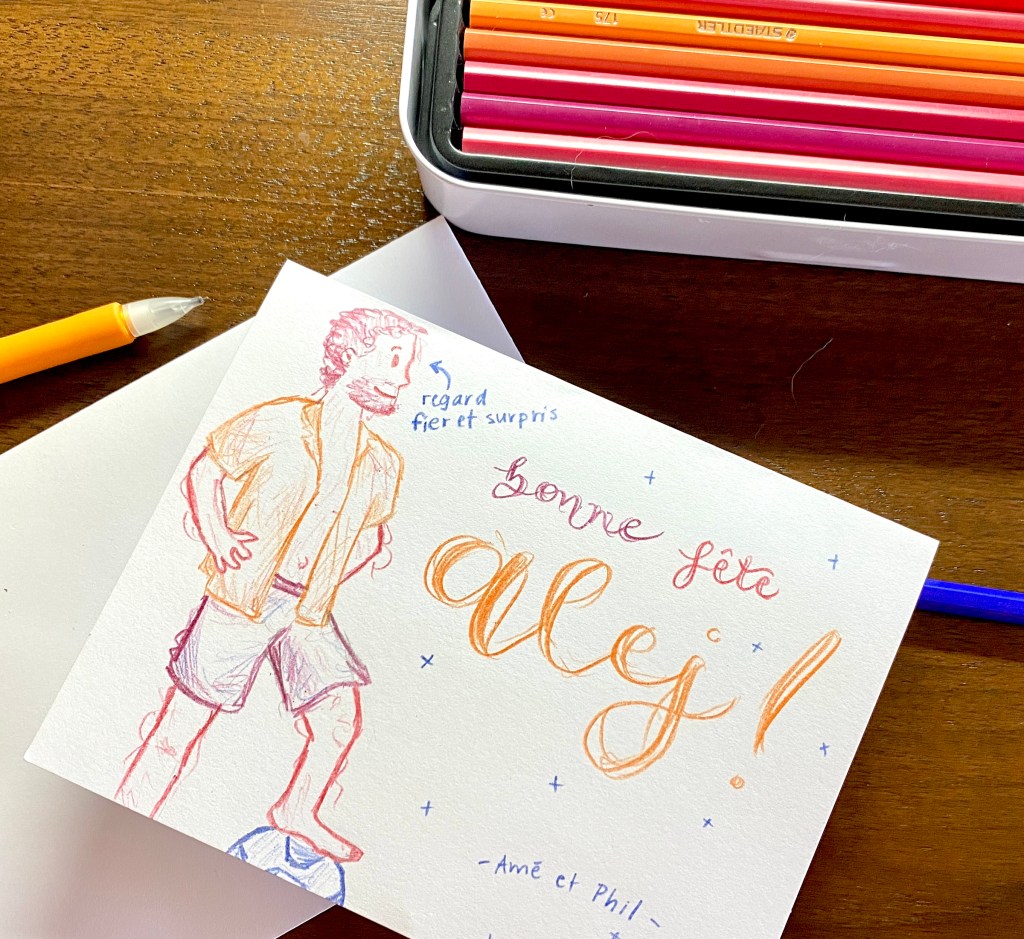 STAEDTLER 175 CE
regard
fier et surpris
bonne fête
alej!
- Amé et Phil -